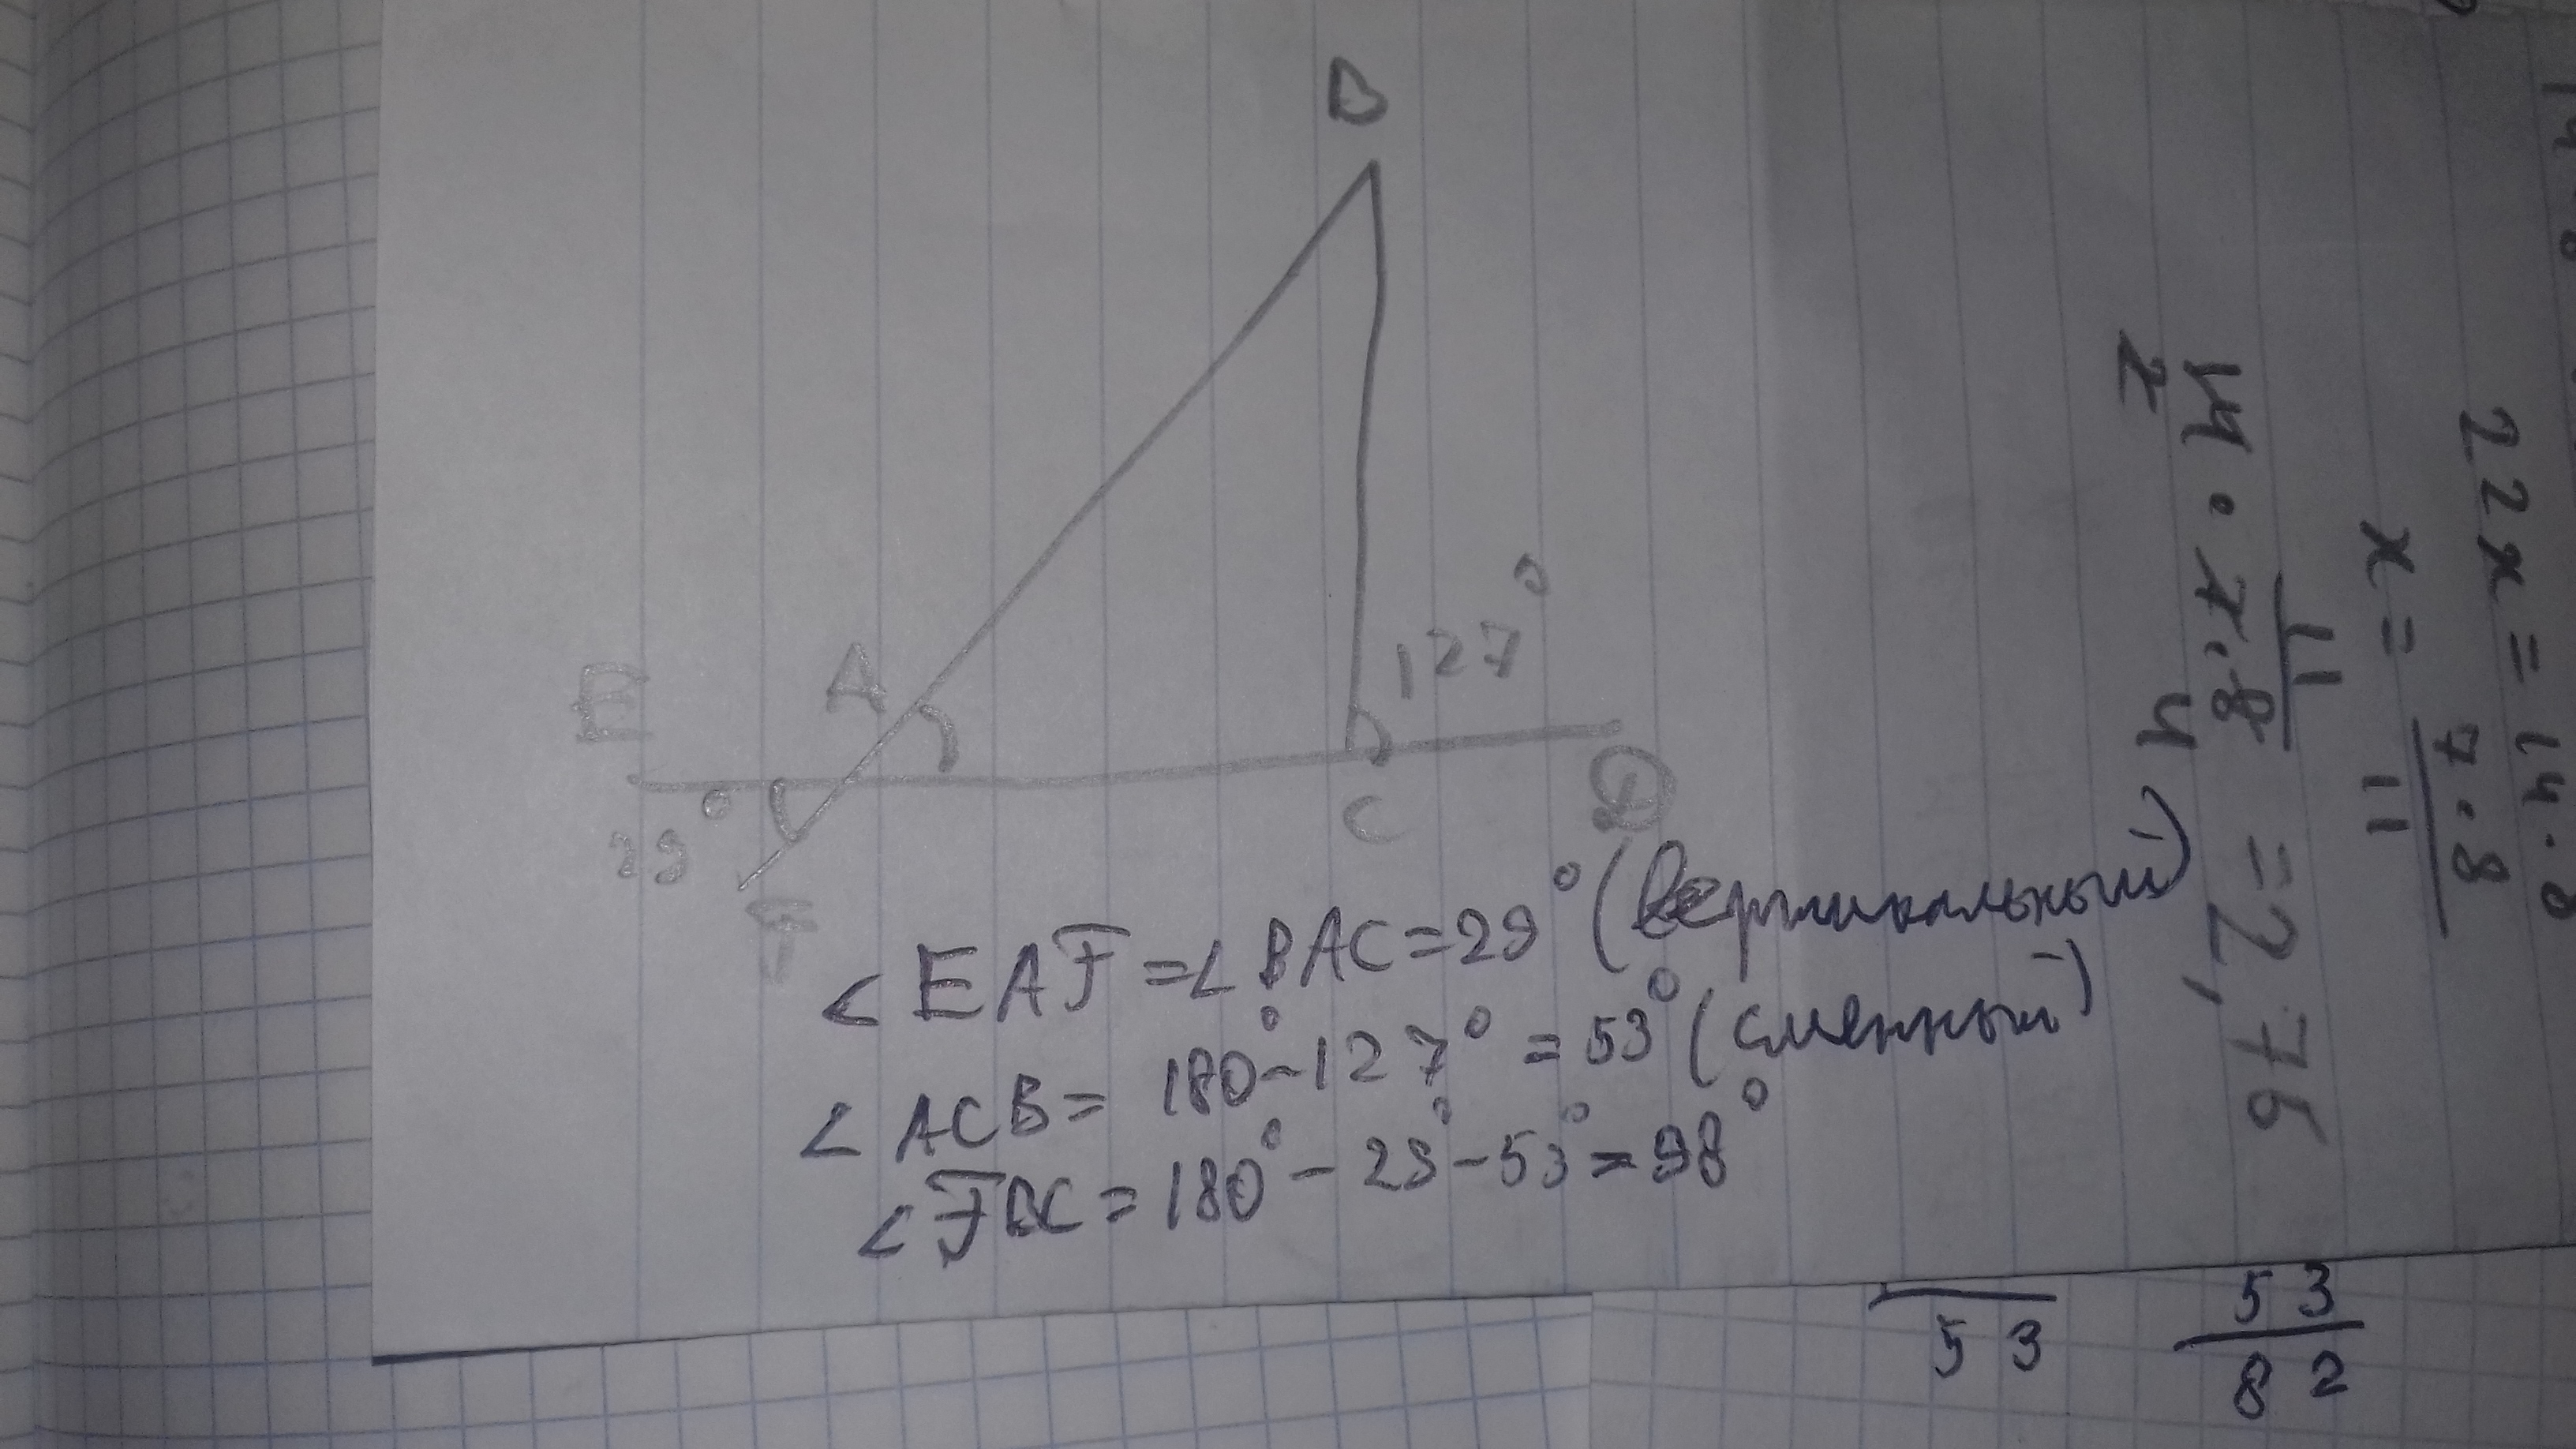 B
127°
A
E
C
D
29°
F
∠EAF=∠BAC=29°(вертикальный)
∠ACB=180°-127°=53°(сменный)
∠FBC=180°-29°-53°=98°
22x=14.8
x=7.8/11
14·7.8/11
=2,76
2
4
53
53
82